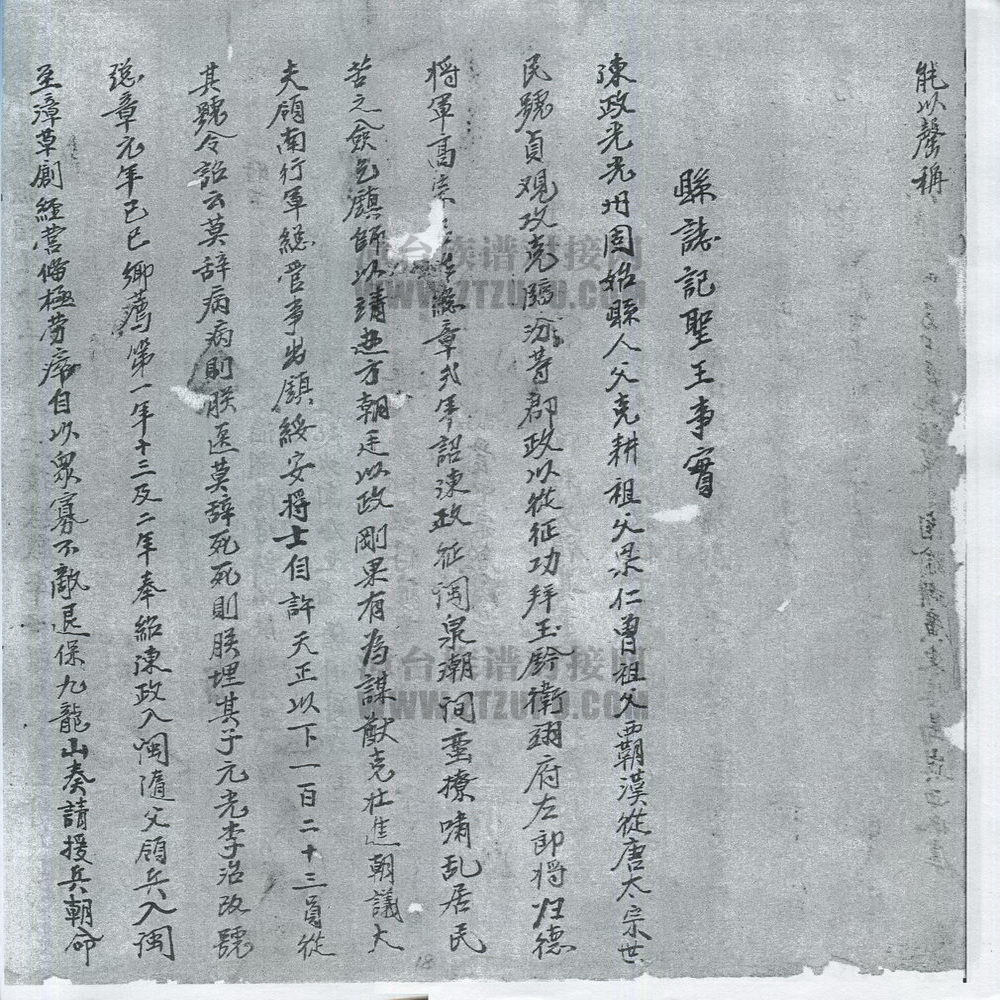 能以罄稱
縣誌記聖王事實
陳政光光州固始縣人父克耕祖父果仁曾祖父霸漢從唐太宗世
民號貞觀攻克臨汾等郡政以從征功拜玉鈐衛翊府左郎將归德
將軍高宗總章弍年詔陳政征閩泉潮间蛮撩嘯乱居民
苦之僉乞鎮帥以靖边方朝廷以政剛果有為謀猷克壮進朝議大
夫領南行軍總管事出鎮綏安將士自許天正以下一百二十三員從
其號令詔云莫辞病病則朕医莫辞死死則朕埋其子元光李治改號
總章元年己巳鄉薦第一年十三及二年奉紹陳政入閩隨父領兵入閩
至漳草創經营俻極劳瘁自以眾寡不敵退保九龍山奏請援兵朝命
海台族谱对接网
WWW.ZTZUPU.COM
海台族谱对接网
WWW.ZTZUPU.COM
18